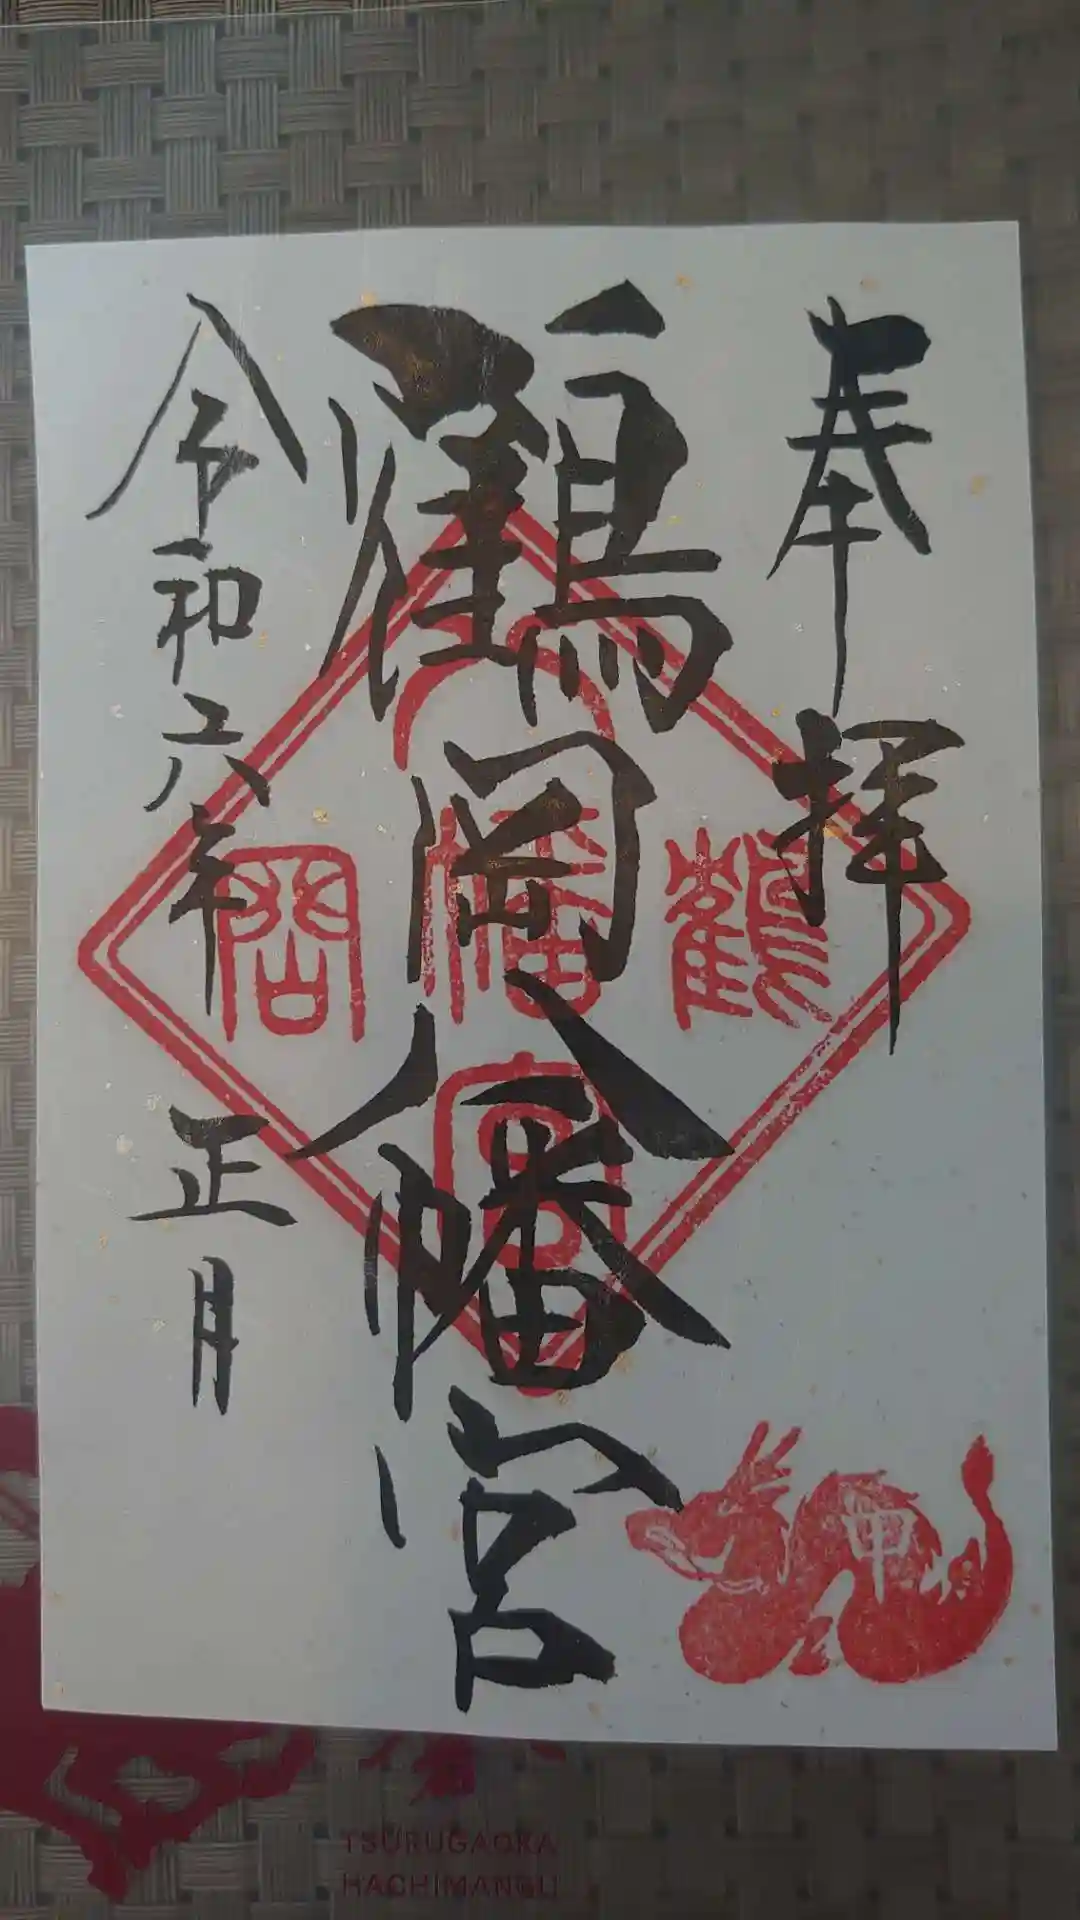 奉拝
鶴岡八幡宮
令和六年 正月
鶴
幡
岡
宮
甲
TSURUGAOKA
HACHIMANGU